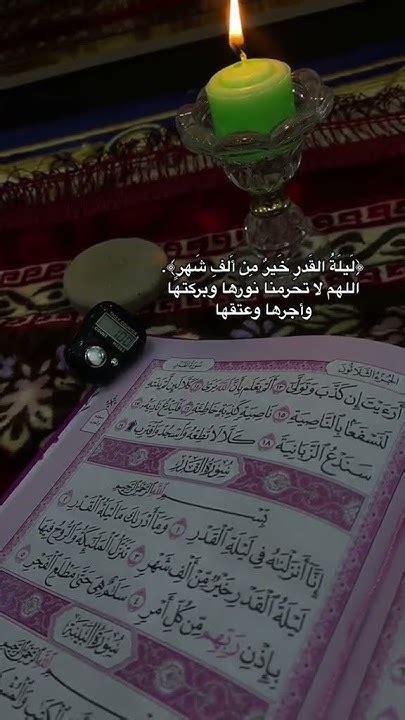 ﴿لَيلَةُ القَدرِ خَيرٌ مِن أَلفِ شَهرٍ﴾.
اللهم لا تحرمنا نورها وبركتها
وأجرها وعتقها
سُورَةُ القَدۡرِ
أَرَءَيۡتَ إِن كَذَّبَ وَتَوَلَّىٰٓ ١٣ أَلَمۡ يَعۡلَم بِأَنَّ ٱللَّهَ يَرَىٰ ١٤ كَلَّا لَئِن لَّمۡ يَنتَهِ
لَنَسۡفَعَۢا بِٱلنَّاصِيَةِ ١٥ نَاصِيَةٖ كَٰذِبَةٍ خَاطِئَةٖ ١٦ فَلۡيَدۡعُ نَادِيَهُۥ ١٧
سَنَدۡعُ ٱلزَّبَانِيَةَ ١٨ كَلَّا لَا تُطِعۡهُ وَٱسۡجُدۡۤ وَٱقۡتَرِب
سُورَةُ القَدۡرِ
بِسۡمِ ٱللَّهِ ٱلرَّحۡمَٰنِ ٱلرَّحِيمِ
إِنَّآ أَنزَلۡنَٰهُ فِي لَيۡلَةِ ٱلۡقَدۡرِ ١ وَمَآ أَدۡرَىٰكَ مَا لَيۡلَةُ ٱلۡقَدۡرِ ٢
لَيۡلَةُ ٱلۡقَدۡرِ خَيۡرٞ مِّنۡ أَلۡفِ شَهۡرٖ ٣ تَنَزَّلُ ٱلۡمَلَٰٓئِكَةُ وَٱلرُّوحُ فِيهَا
بِإِذۡنِ رَبِّهِم مِّن كُلِّ أَمۡرٖ ٤ سَلَٰمٌ هِيَ حَتَّىٰ مَطۡلَعِ ٱلۡفَجۡرِ ٥
سُورَةُ البَيِّنَةِ
بِسۡمِ ٱللَّهِ ٱلرَّحۡمَٰنِ ٱلرَّحِيمِ